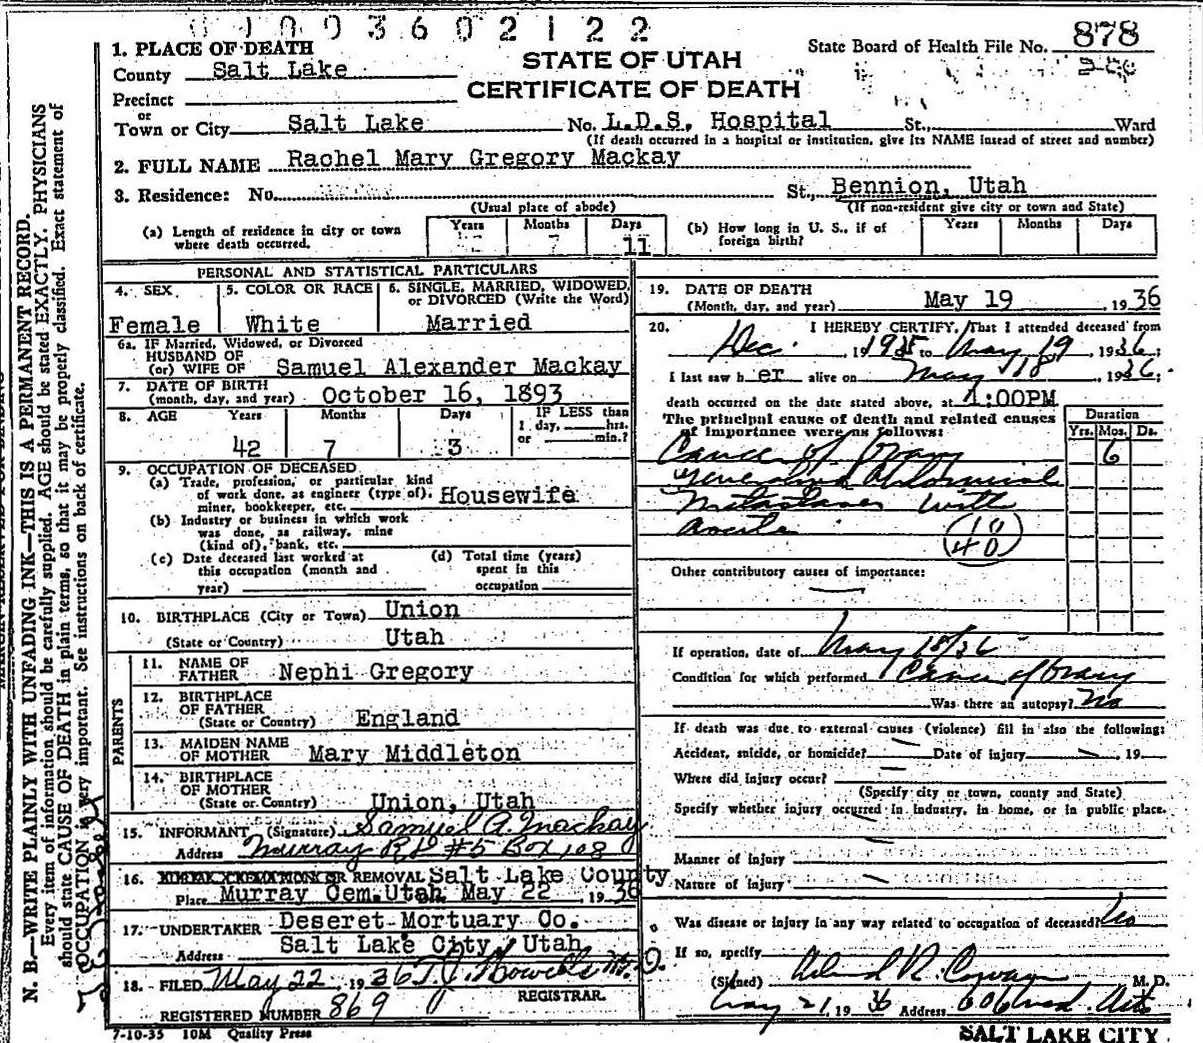 0 1 0 0 3 6 0 2 1 2 2
1. PLACE OF DEATH
County Salt Lake
Precinct
or
Town or City Salt Lake No. L.D.S. Hospital St., Ward
(If death occurred in a hospital or institution, give its NAME instead of street and number)
STATE OF UTAH
CERTIFICATE OF DEATH
State Board of Health File No. 878
2. FULL NAME Rachel Mary Gregory Mackay
3. Residence: No. St., Bennion, Utah
(Usual place of abode) (If non-resident give city or town and State)
(a) Length of residence in city or town where death occurred. Years Months 7 Days 11
(b) How long in U. S., if of foreign birth? Years Months Days
PERSONAL AND STATISTICAL PARTICULARS
4. SEX Female
5. COLOR OR RACE White
6. SINGLE, MARRIED, WIDOWED, or DIVORCED (Write the Word) Married
6a. IF Married, Widowed, or Divorced
HUSBAND OF
(or) WIFE OF Samuel Alexander Mackay
7. DATE OF BIRTH
(month, day, and year) October 16, 1893
8. AGE Years 42 Months 7 Days 3 IF LESS than 1 day, hrs. or min.?
9. OCCUPATION OF DECEASED
(a) Trade, profession, or particular kind
of work done, as engineer (type of),
miner, bookkeeper, etc. Housewife
(b) Industry or business in which work
was done, as railway, mine
(kind of), bank, etc.
(c) Date deceased last worked at
this occupation (month and
year)
(d) Total time (years)
spent in this
occupation
10. BIRTHPLACE (City or Town) Union
(State or Country) Utah
PARENTS
11. NAME OF
FATHER Nephi Gregory
12. BIRTHPLACE
OF FATHER
(State or Country) England
13. MAIDEN NAME
OF MOTHER Mary Middleton
14. BIRTHPLACE
OF MOTHER
(State or Country) Union, Utah
15. INFORMANT (Signature) Samuel A. Mackay
Address Murray R.D #5 Box 108
16. BURIAL, CREMATION OR REMOVAL Salt Lake County
Place Murray Cem. Utah May 22, 1936
17. UNDERTAKER Deseret Mortuary Co.
Address Salt Lake City, Utah
18. FILED May 22, 1936 T. J. Howells M.D.
REGISTRAR.
REGISTERED NUMBER 869
7-10-35 10M Quality Press
19. DATE OF DEATH
(Month, day, and year) May 19, 1936
20. I HEREBY CERTIFY, That I attended deceased from
Dec. 1935 to May 19, 1936;
I last saw her alive on May 18, 1936;
death occurred on the date stated above, at 1:00PM
The principal cause of death and related causes
of importance were as follows:
Duration
Yrs. Mos. Ds.
Cancer of Ovary 6
Generalized Abdominal
Metastases with
Ascites
10
40
Other contributory causes of importance:
If operation, date of May 18/36
Condition for which performed Cancer of Ovary
Was there an autopsy? No
If death was due to external causes (violence) fill in also the following:
Accident, suicide, or homicide? Date of injury , 19
Where did injury occur?
(Specify city or town, county and State)
Specify whether injury occurred in industry, in home, or in public place.
Manner of injury
Nature of injury
Was disease or injury in any way related to occupation of deceased? No
If so, specify
(Signed) M. D.
May 21, 1936 Address 606 Med. Arts
SALT LAKE CITY
N. B.—WRITE PLAINLY WITH UNFADING INK—THIS IS A PERMANENT RECORD.
Every item of information should be carefully supplied. AGE should be stated EXACTLY. PHYSICIANS
should state CAUSE OF DEATH in plain terms, so that it may be properly classified. Exact statement of
OCCUPATION is very important. See instructions on back of certificate.